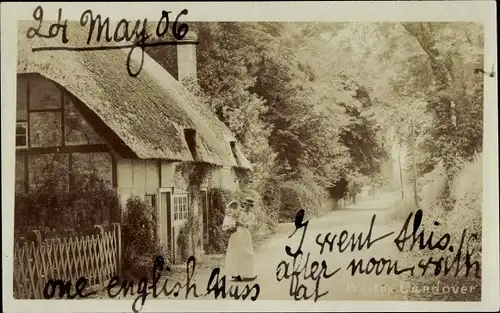 24 May 06
I went this
after noon with
one english Miss
at
Candover